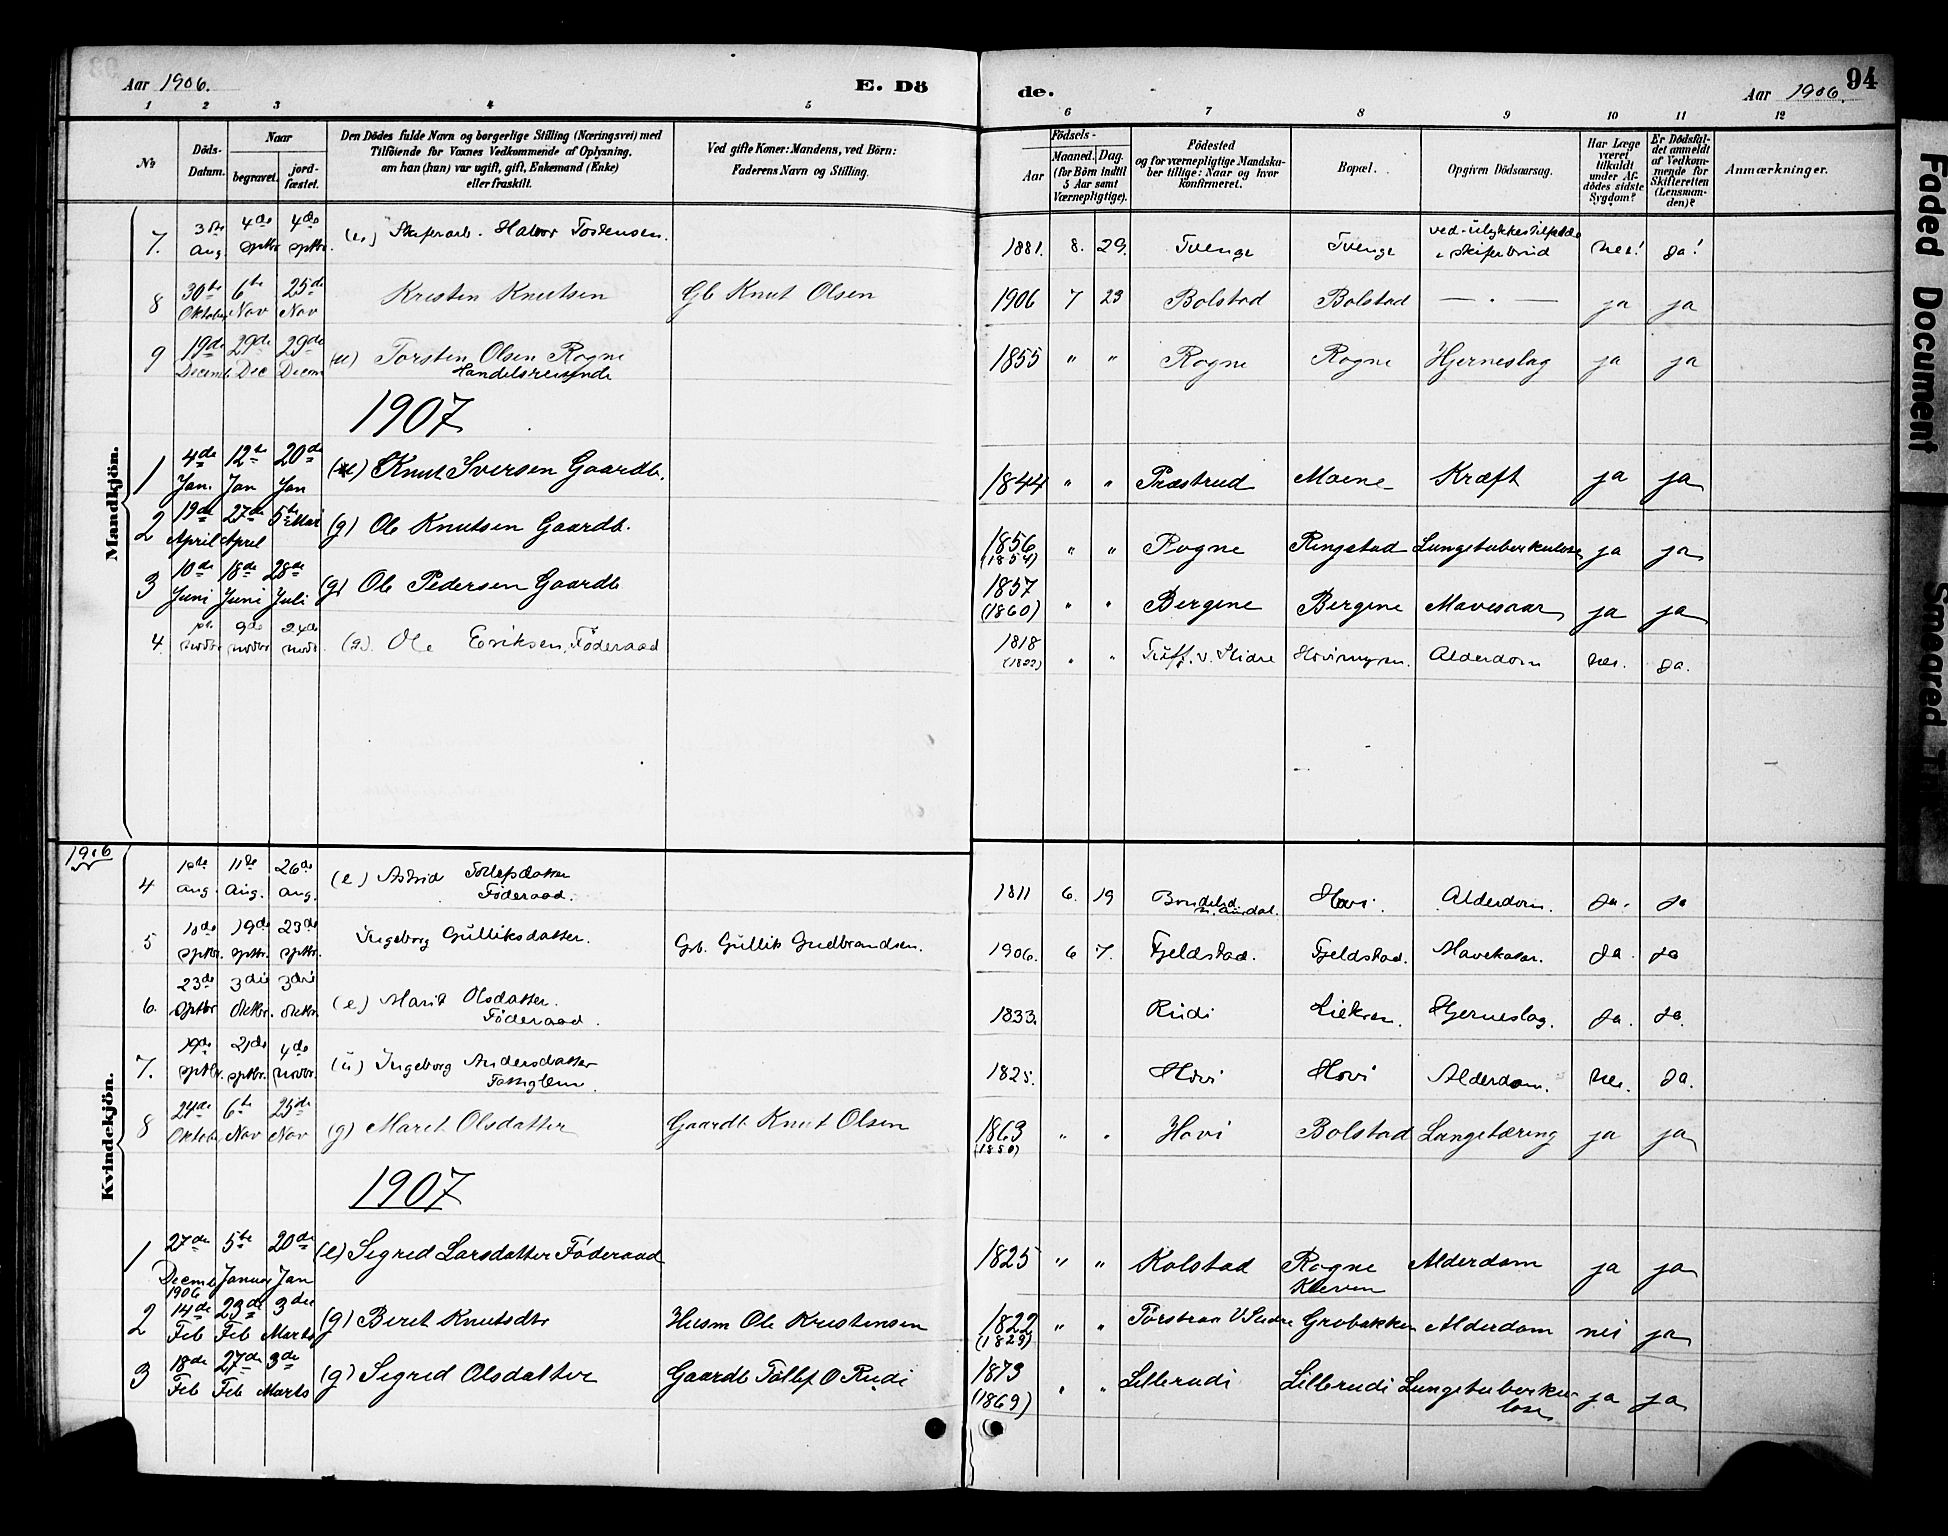 Aar 1906.
E. Dö
de.
Aar 1906.
94
1 2 3 4 5 6 7 8 9 10 11 12
No
Döds-Datum.
Naar
begravet.
jord-fæstet.
Den Dödes fulde Navn og borgerlige Stilling (Næringsvei) med
Tilföiende for Voxnes Vedkommende af Oplysning,
om han (han) var ugift, gift, Enkemand (Enke)
eller fraskilt.
Ved gifte Koner: Mandens, ved Börn:
Faderens Navn og Stilling.
Födsels-
Aar
Maaned. Dag.
(for Börn indtil
5 Aar samt
Værnepligtige).
Födested
og for værnepligtige Mandska-
ber tillige: Naar og hvor
konfirmeret.
Bopæl.
Opgiven Dödsaarsag.
Har Læge
været
tilkaldt
under Af-
dödes sidste
Sygdom?
Er Dödsfal-
det anmeldt
af Vedkom-
mende for
Skifteretten
(Lensman-
den)?
Anmærkninger.
Mandkjön.
7. 3die Aug 4de Sptbr 4de Sptbr. (u) Skiferarb. Halvor Tostensen. 1881. 8. 29. Tvenge Tvenge ved ulykkestilfælde i skiferbrud Nei! Ja!
8 30te Oktober 6te Nov 25de Nov Kristen Knutsen Gb Knut Olsen 1906 7 23 Bolstad Bolstad — . — ja ja
9 19de Decemb 29de Dec 29de Decem (u) Torsten Olsen Rogne Handelsreisende 1855 " " Rogne Rogne Hjerneslag ja ja
1907
1 4de Jan. 12te Jan 20de Jan Knut Iversen Gaardb. 1844 " " Præstrud Moene Kræft ja ja
2 19de April 27de April 5te Mai (g) Ole Knutsen Gaardb. 1856 (1854) " " Rogne Ringstad Lungetuberkulose ja ja
3 10de Juni 18de Juni 28de Juli (g) Ole Pedersen Gaardb 1857 (1860) " " Bergene Bergene Mavesaar ja ja
4. 1ste Novbr 9de Novbr 24de Novbr. (g). Ole Eriksen, Föderaad 1818 (1822) " " Tuff. v. Slidre Hovimyren. Alderdom Nei. Ja.
1906
Kvindekjön.
4 Aug. 11te Aug. 26de Aug. (e) Astrid Tollefsdatter Föderaad. 1811 6. 19 N. Aurdal. Hovi. Alderdom. Ja. Ja
5 10de Sptbr. 19de Sptbr. 23de Sptbr. Ingeborg Gulliksdatter. Grb. Gullik Gudbrandsen. 1906. 6 7. Fjeldstad. Fjeldstad. Mavekatar. Ja. Ja
6. 23de Sptbr 3die Oktbr. 3die Oktbr. (e) Marit Olsdatter. Föderaad. 1833. Rudi Hjerneslag. Ja. Ja.
7. 19de Sptbr. 21de Sptbr. 4de Novbr. (u) Ingeborg Andersdatter Fattiglem. 1825. Hovi Hovi Alderdom. Nei. Ja.
8 24de Oktob 6te Nov 25de Nov (g) Marit Olsdatter Gaardb Knut Olsen 1863 (1850) " " Hovi Bolstad Lungetæring ja ja
1907
1 27de Decemb 1906 5te Januar 20de Jan (e) Sigrid Larsdatter Föderaad 1825 " " Kolstad Rogne Kleven Alderdom ja ja
2 14de Feb 23de Feb 3die Marts (g) Beret Knutsdtr Husm Ole Kristensen 1822 (1829) " " V Slidre Grobakken Alderdom nei ja
3 18de Feb 27de Feb 3de Marts (g) Sigrid Olsdatter Gaardb Tollef O Rudi 1873 (1869) " " Lillerudi Lillerudi Lungetuberku-lose ja ja
Faded Document
Smeared